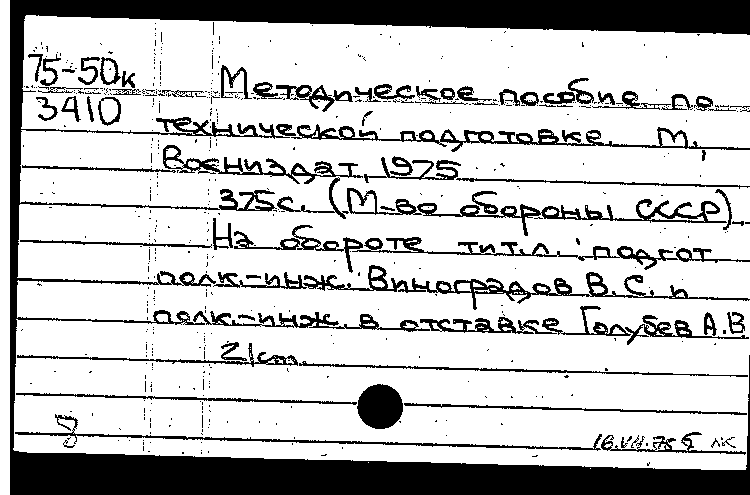 75-50к
3410
Методическое пособие по
технической подготовке. М.,
Воениздат, 1975
375с. (М-во обороны СССР).
На обороте тит.л.: подгот.
полк.-инж. Виноградов В.С. и
полк.-инж. в отставке Голубев А.В
21cm.
8
16.VII.75 лк